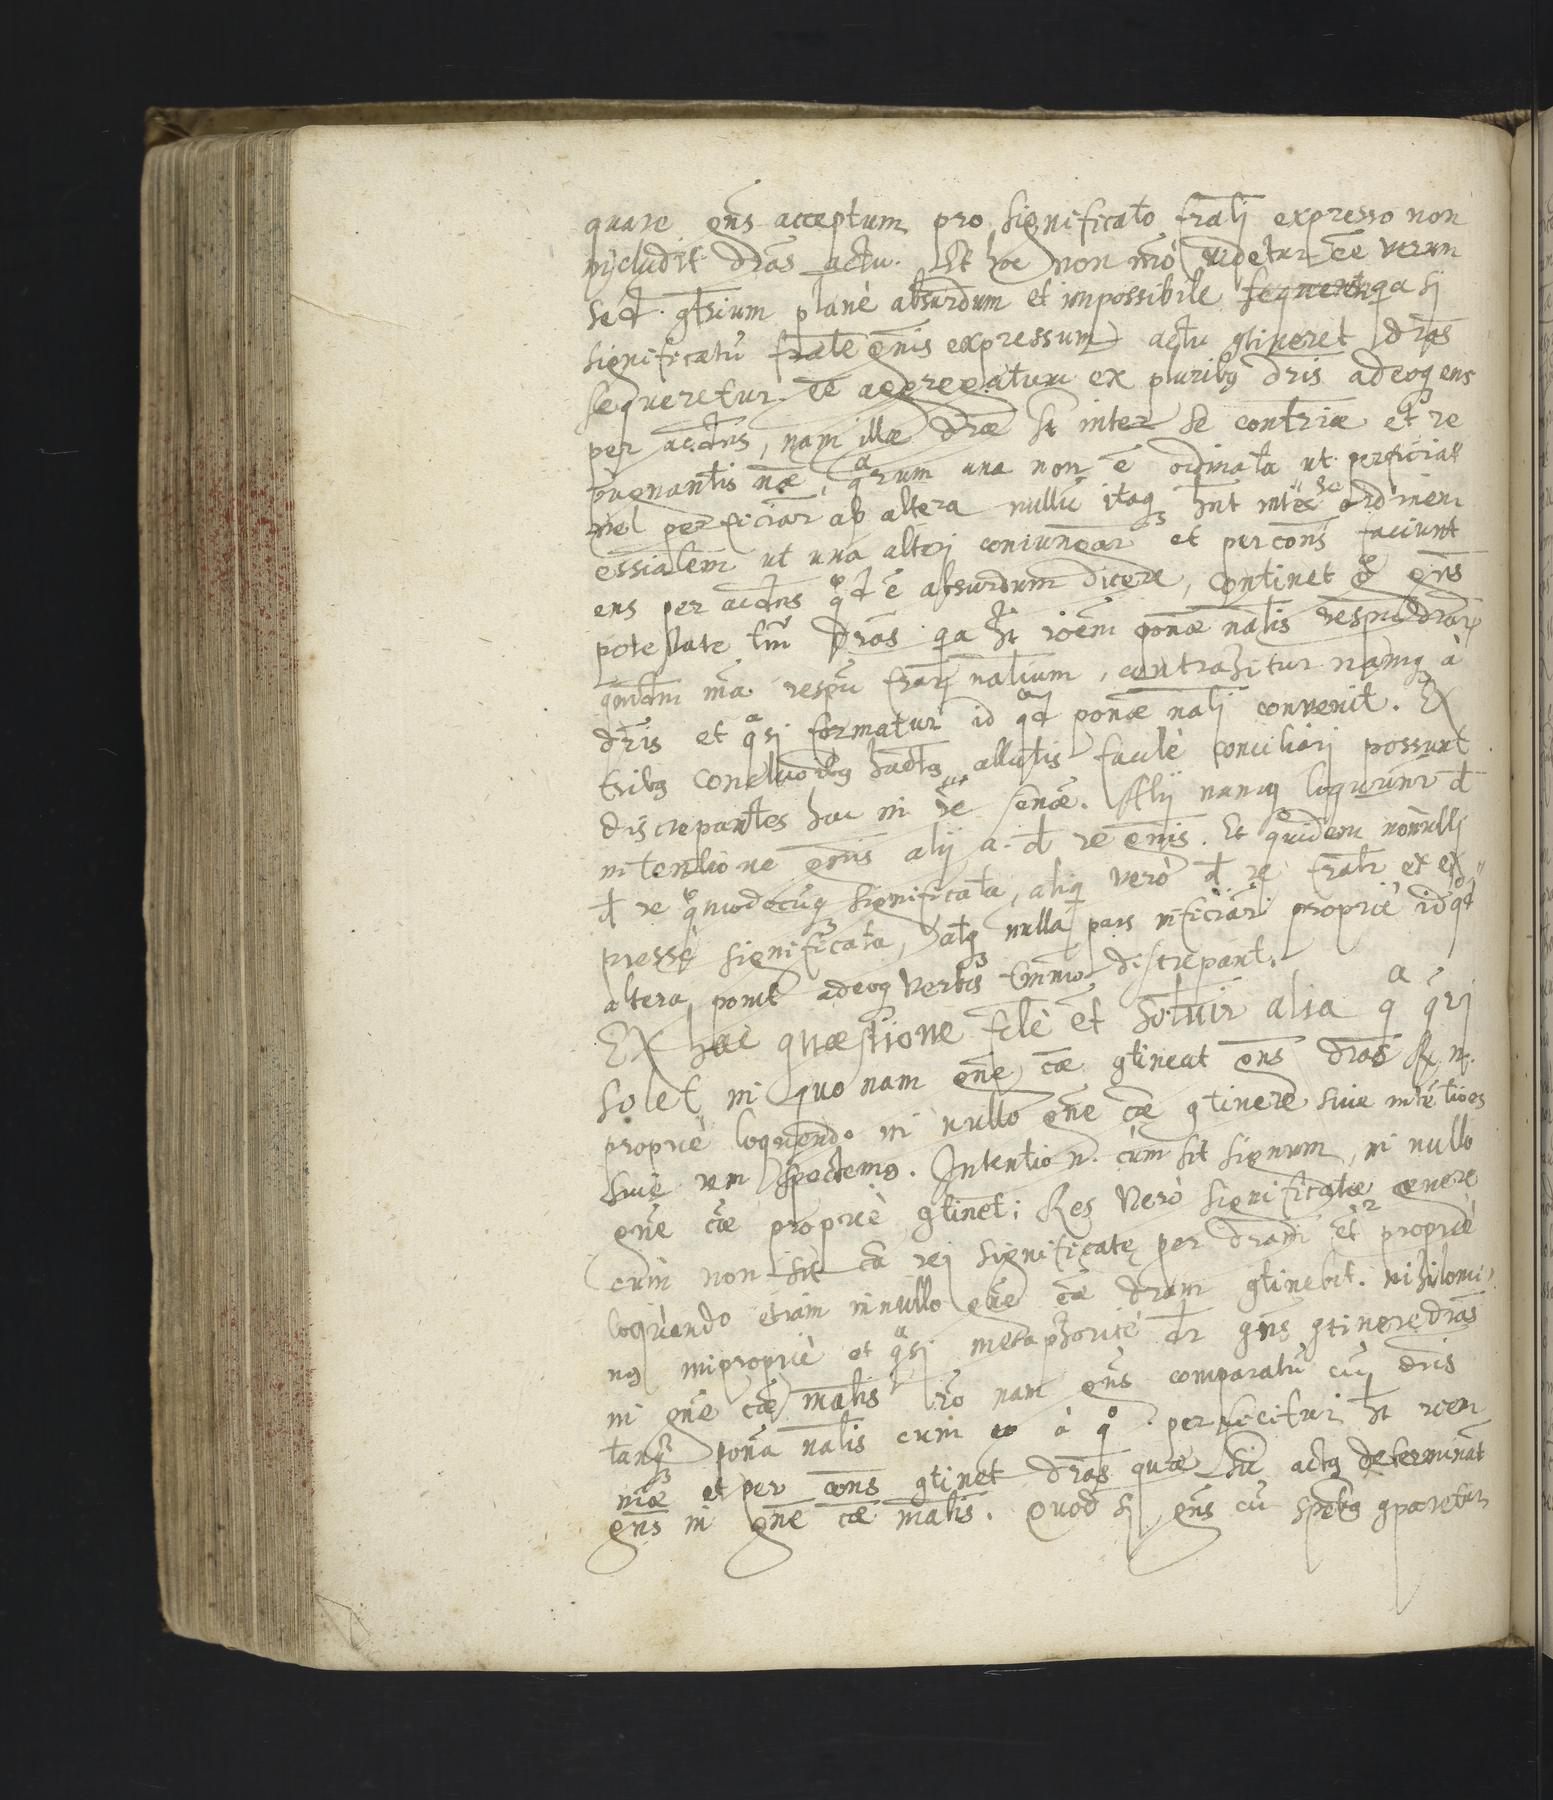 quare gn̄s acceptum pro significato fr̄ali expresso non
includit dr̄as actu. Et hoc non mō videtur ēē verum
sed gtrium planè absurdum et impossibile qa si
significatū frāle gn̄is expressum actu gtineret dr̄as
sequeretur ēē aggregatum ex pluribꝯ dr̄is adeoqꝫ ens
per accdns, nam illæ dr̄æ st inter se contriæ et re
pugnantis næ, qarum una non ē ordinata ut perficiat
vel perficiar̄ ab altera nullū itaqꝫ hn̄t inter se ordinem
essialem ut una alteri coniungar̄ et per cons̄ faciunt
ens per accdns qod ē absurdum dicere, continet g gn̄s
potestate tm̄ dr̄as qa ht rōem ponæ nalis respu drar̄
qmdm ma respū frar̄ nalium, contrahitur namqꝫ à
dr̄is et qasi formatur id qod ponæ nali convenit. Ex
tribꝯ conclusoibꝯ hactꝯ allatis facilè conciliari possunt
discrepantes hac in re senæ. Alij namqꝫ loquuntr d
intentione gn̄is alij a. d re gn̄is. Et quidem nonnulli
d re quomodocūqꝫ significata, aliqi verò d re frali et ex
pressè significata, atqꝫ nulla pars inficiar̄ propriè id qod
altera ponit adeoqꝫ verbis tm̄mō discrepant.
Ex hac quæstione fclè et solvir̄ alia qa qri
solet in quonam gn̄e cæ gtineat gn̄s dr̄as R. n.
propriè loquendo in nullo gn̄e cæ gtinere sive intētioēs
sive rem spectemꝯ. Intentio n. cùm sit signum, in nullo
gn̄e cæ propriè gtinet; Res verò significatæ genere
cum non sit ca rei significatę per dr̄am et propriè
loquendo etiam in nullo gn̄e cæ dr̄am gtinebit. nihilomi
nꝯ impropriè et qasi metaphoricè dr gn̄s gtinere dr̄as
in gn̄e cæ malis rō nam gn̄s comparatū cū dr̄is
tanqꝫ pona nalis cum eo à qo perficitur ht rōem
mæ et per cons gtinet dr̄as quæ sic actꝯ determināt
gn̄s in gn̄e cæ malis. Quod si gn̄s cū spēbꝯ gparetur